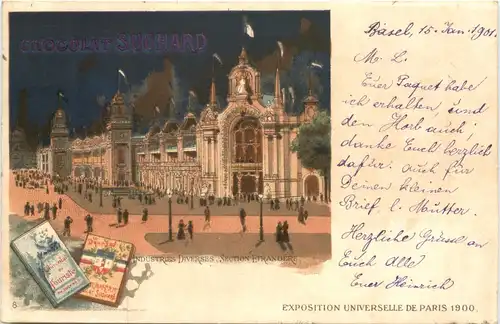 CHOCOLAT SUCHARD
Basel, 15. Jan. 1901.
M. L.
Euer Paquet habe
ich erhalten, und
den Korb auch,
danke Euch herzlich
dafür. auch für
Deinen kleinen
Brief, l. Mutter.
Herzliche Grüsse an
Euch Alle
Euer Heinrich
INDUSTRIES DIVERSES. SECTION ETRANGÈRE
8
EXPOSITION UNIVERSELLE DE PARIS 1900.